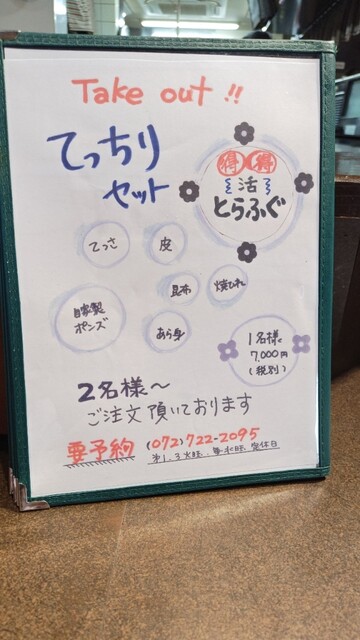 Take out !!
てっちり
セット
得 得
活
とらふぐ
てっさ
皮
昆布
焼ひれ
自家製
ポンズ
あら身
1名様
7,000円
(税別)
2名様～
ご注文頂いております
要予約 (072)722-2095
第1.3火曜.毎水曜 定休日